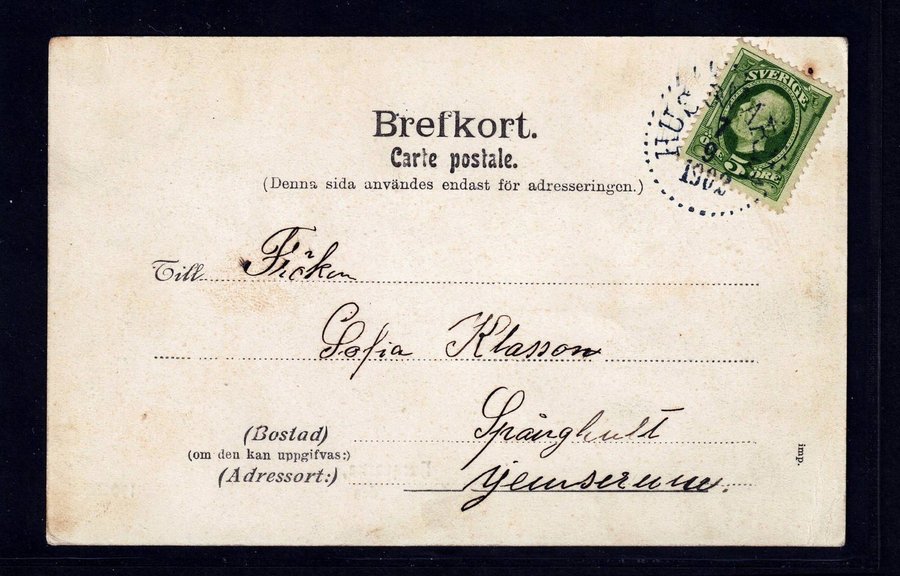 Brefkort.
Carte postale.
(Denna sida användes endast för adresseringen.)
SVERIGE
5
ÖRE
ÖRE
7
9
1902
Till Fröken
Sofia Klasson
(Bostad) Spånghult
(om den kan uppgifvas:)
(Adressort:)
imp.